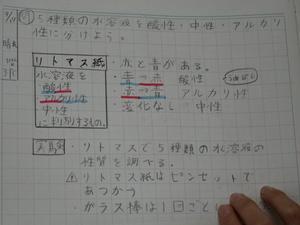 5種類の水溶液を酸性・中性・アルカリ
性に分けよう。
リトマス紙
水溶液を
酸性
アルカリ性
中性
に判別するもの。
・赤と青がある。
青→赤 酸性
赤→青 アルカリ性
・変化なし 中性
実験
・リトマスで5種類の水溶液の
性質を調べる。
⚠リトマス紙はピンセットで
あつかう
・ガラス棒は1回ごとに